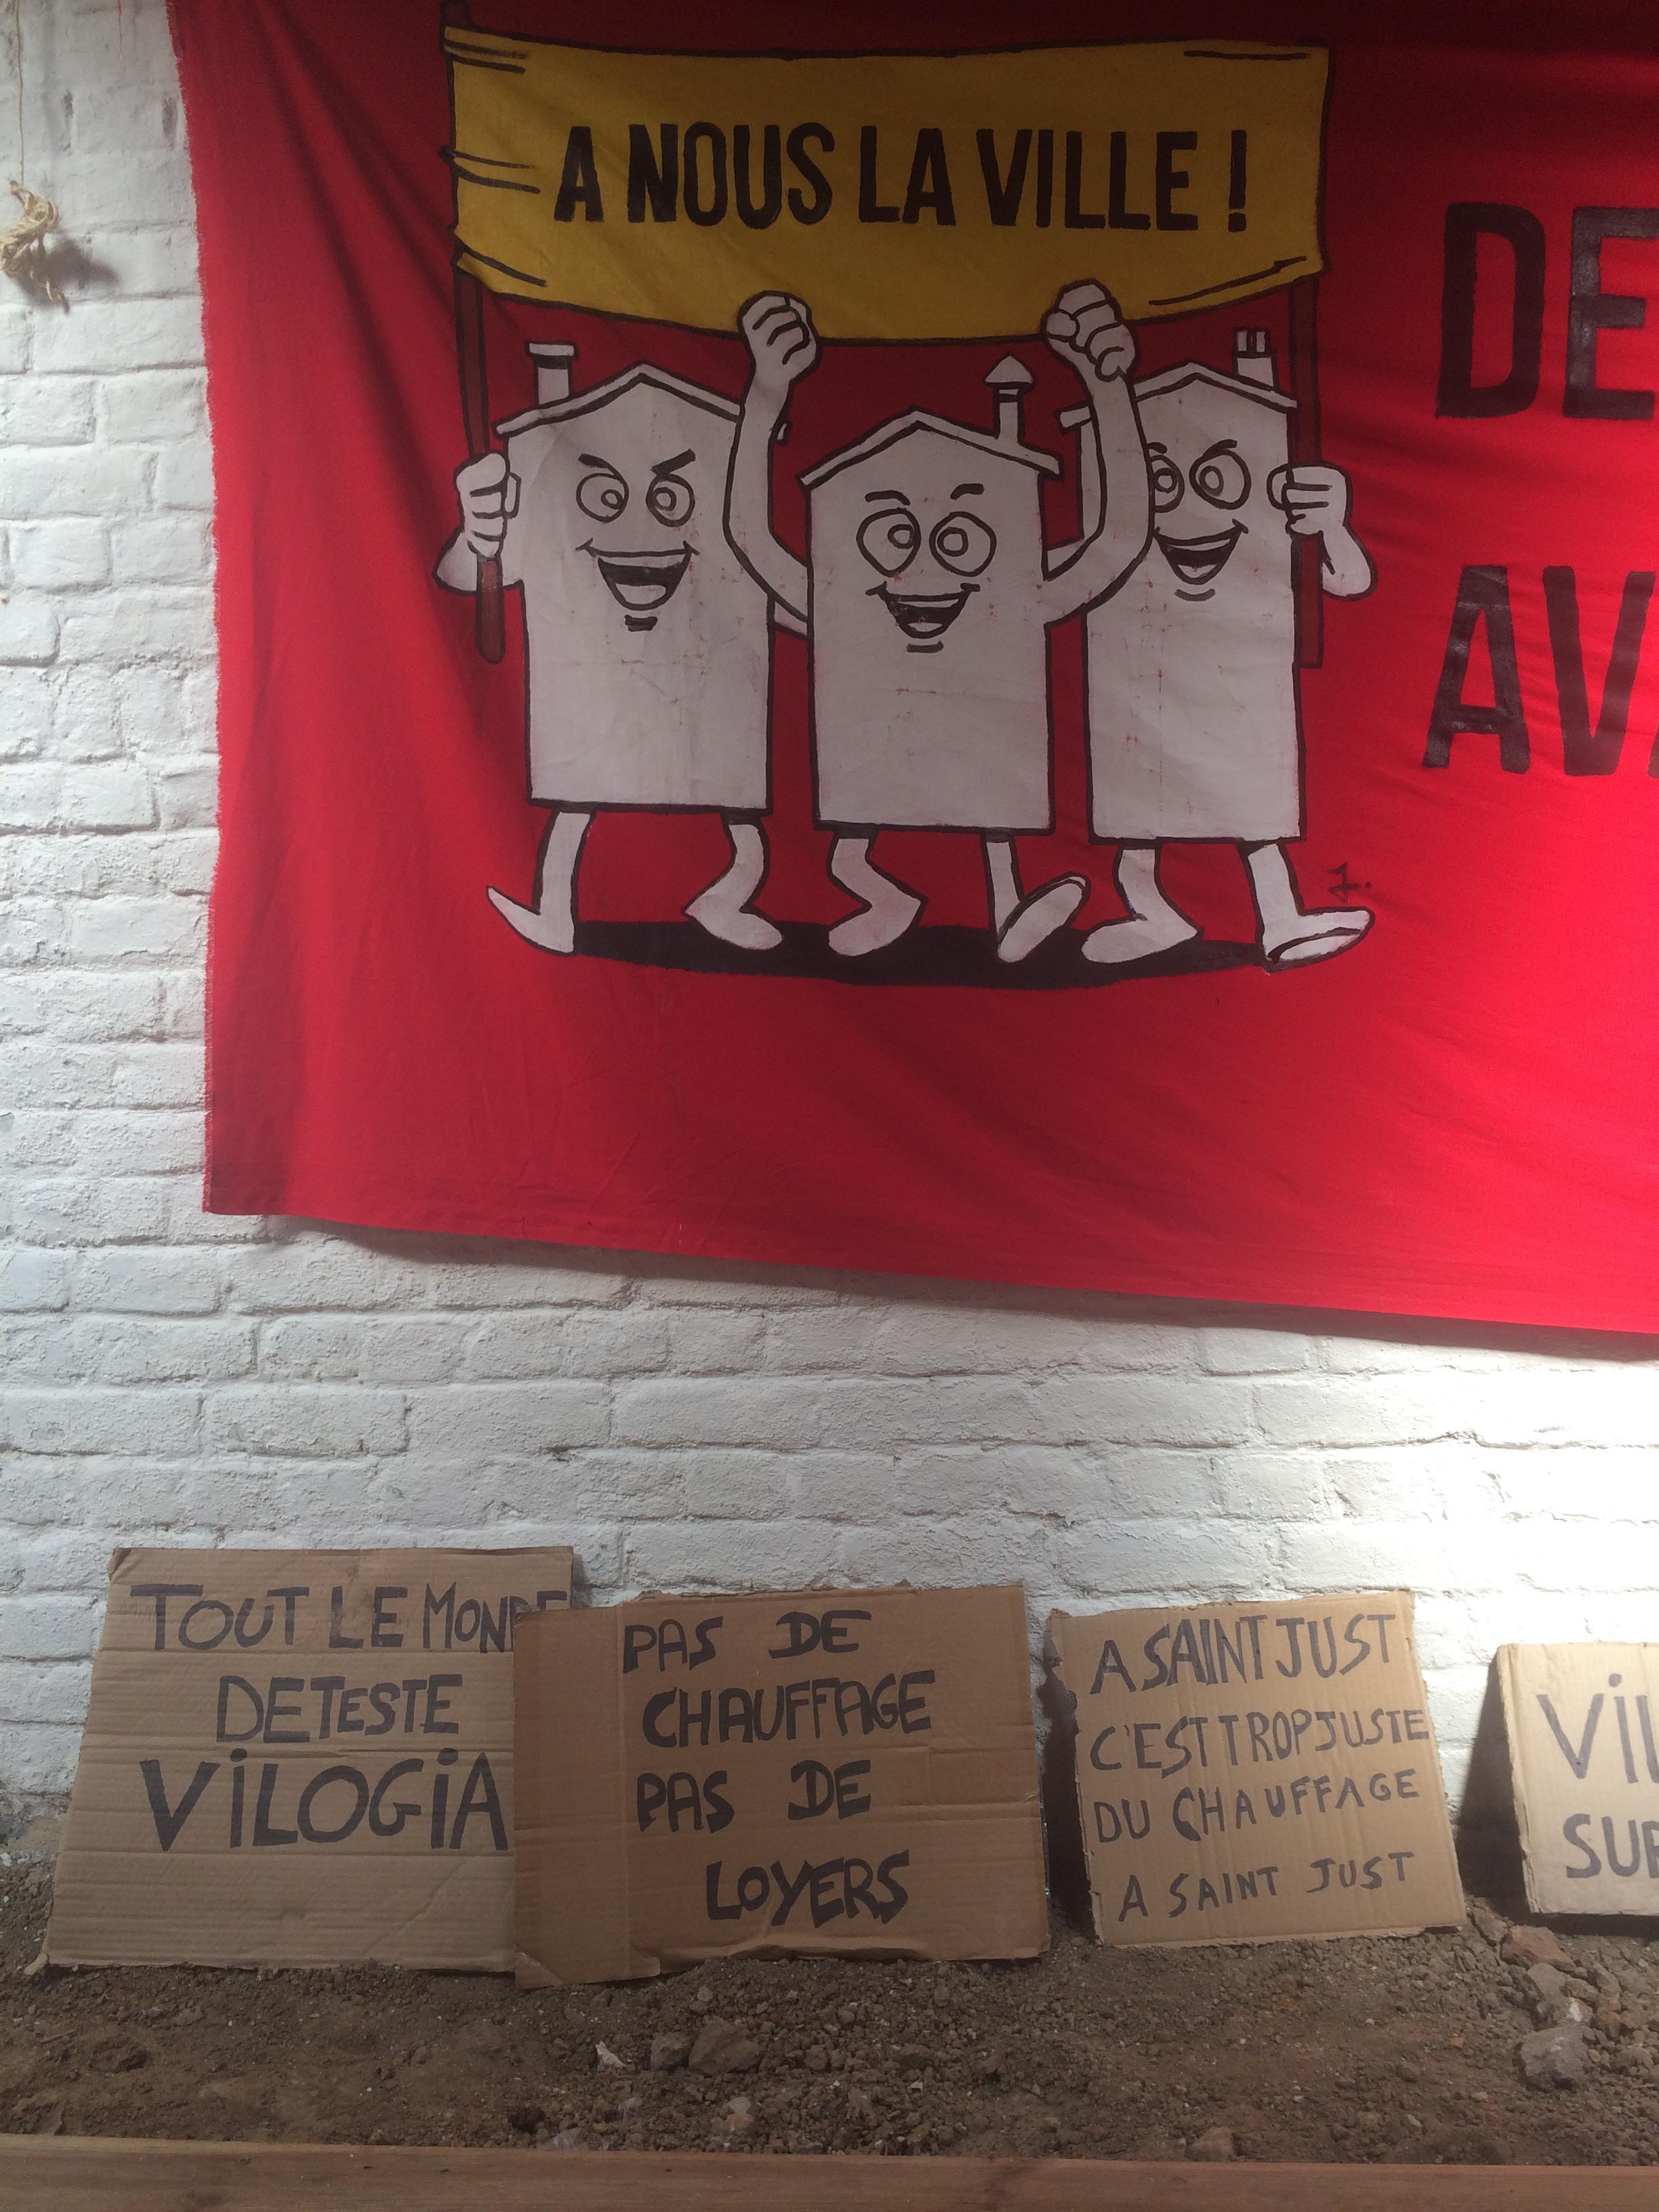 A NOUS LA VILLE !
DE
AV
TOUT LE MONDE
DETESTE
VILOGIA
PAS DE
CHAUFFAGE
PAS DE
LOYERS
A SAINT JUST
C'EST TROP JUSTE
DU CHAUFFAGE
A SAINT JUST
VIL
SUB